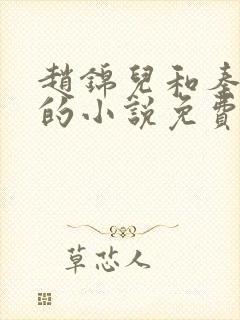 趙錦兒和秦
的小說免費
草芯人